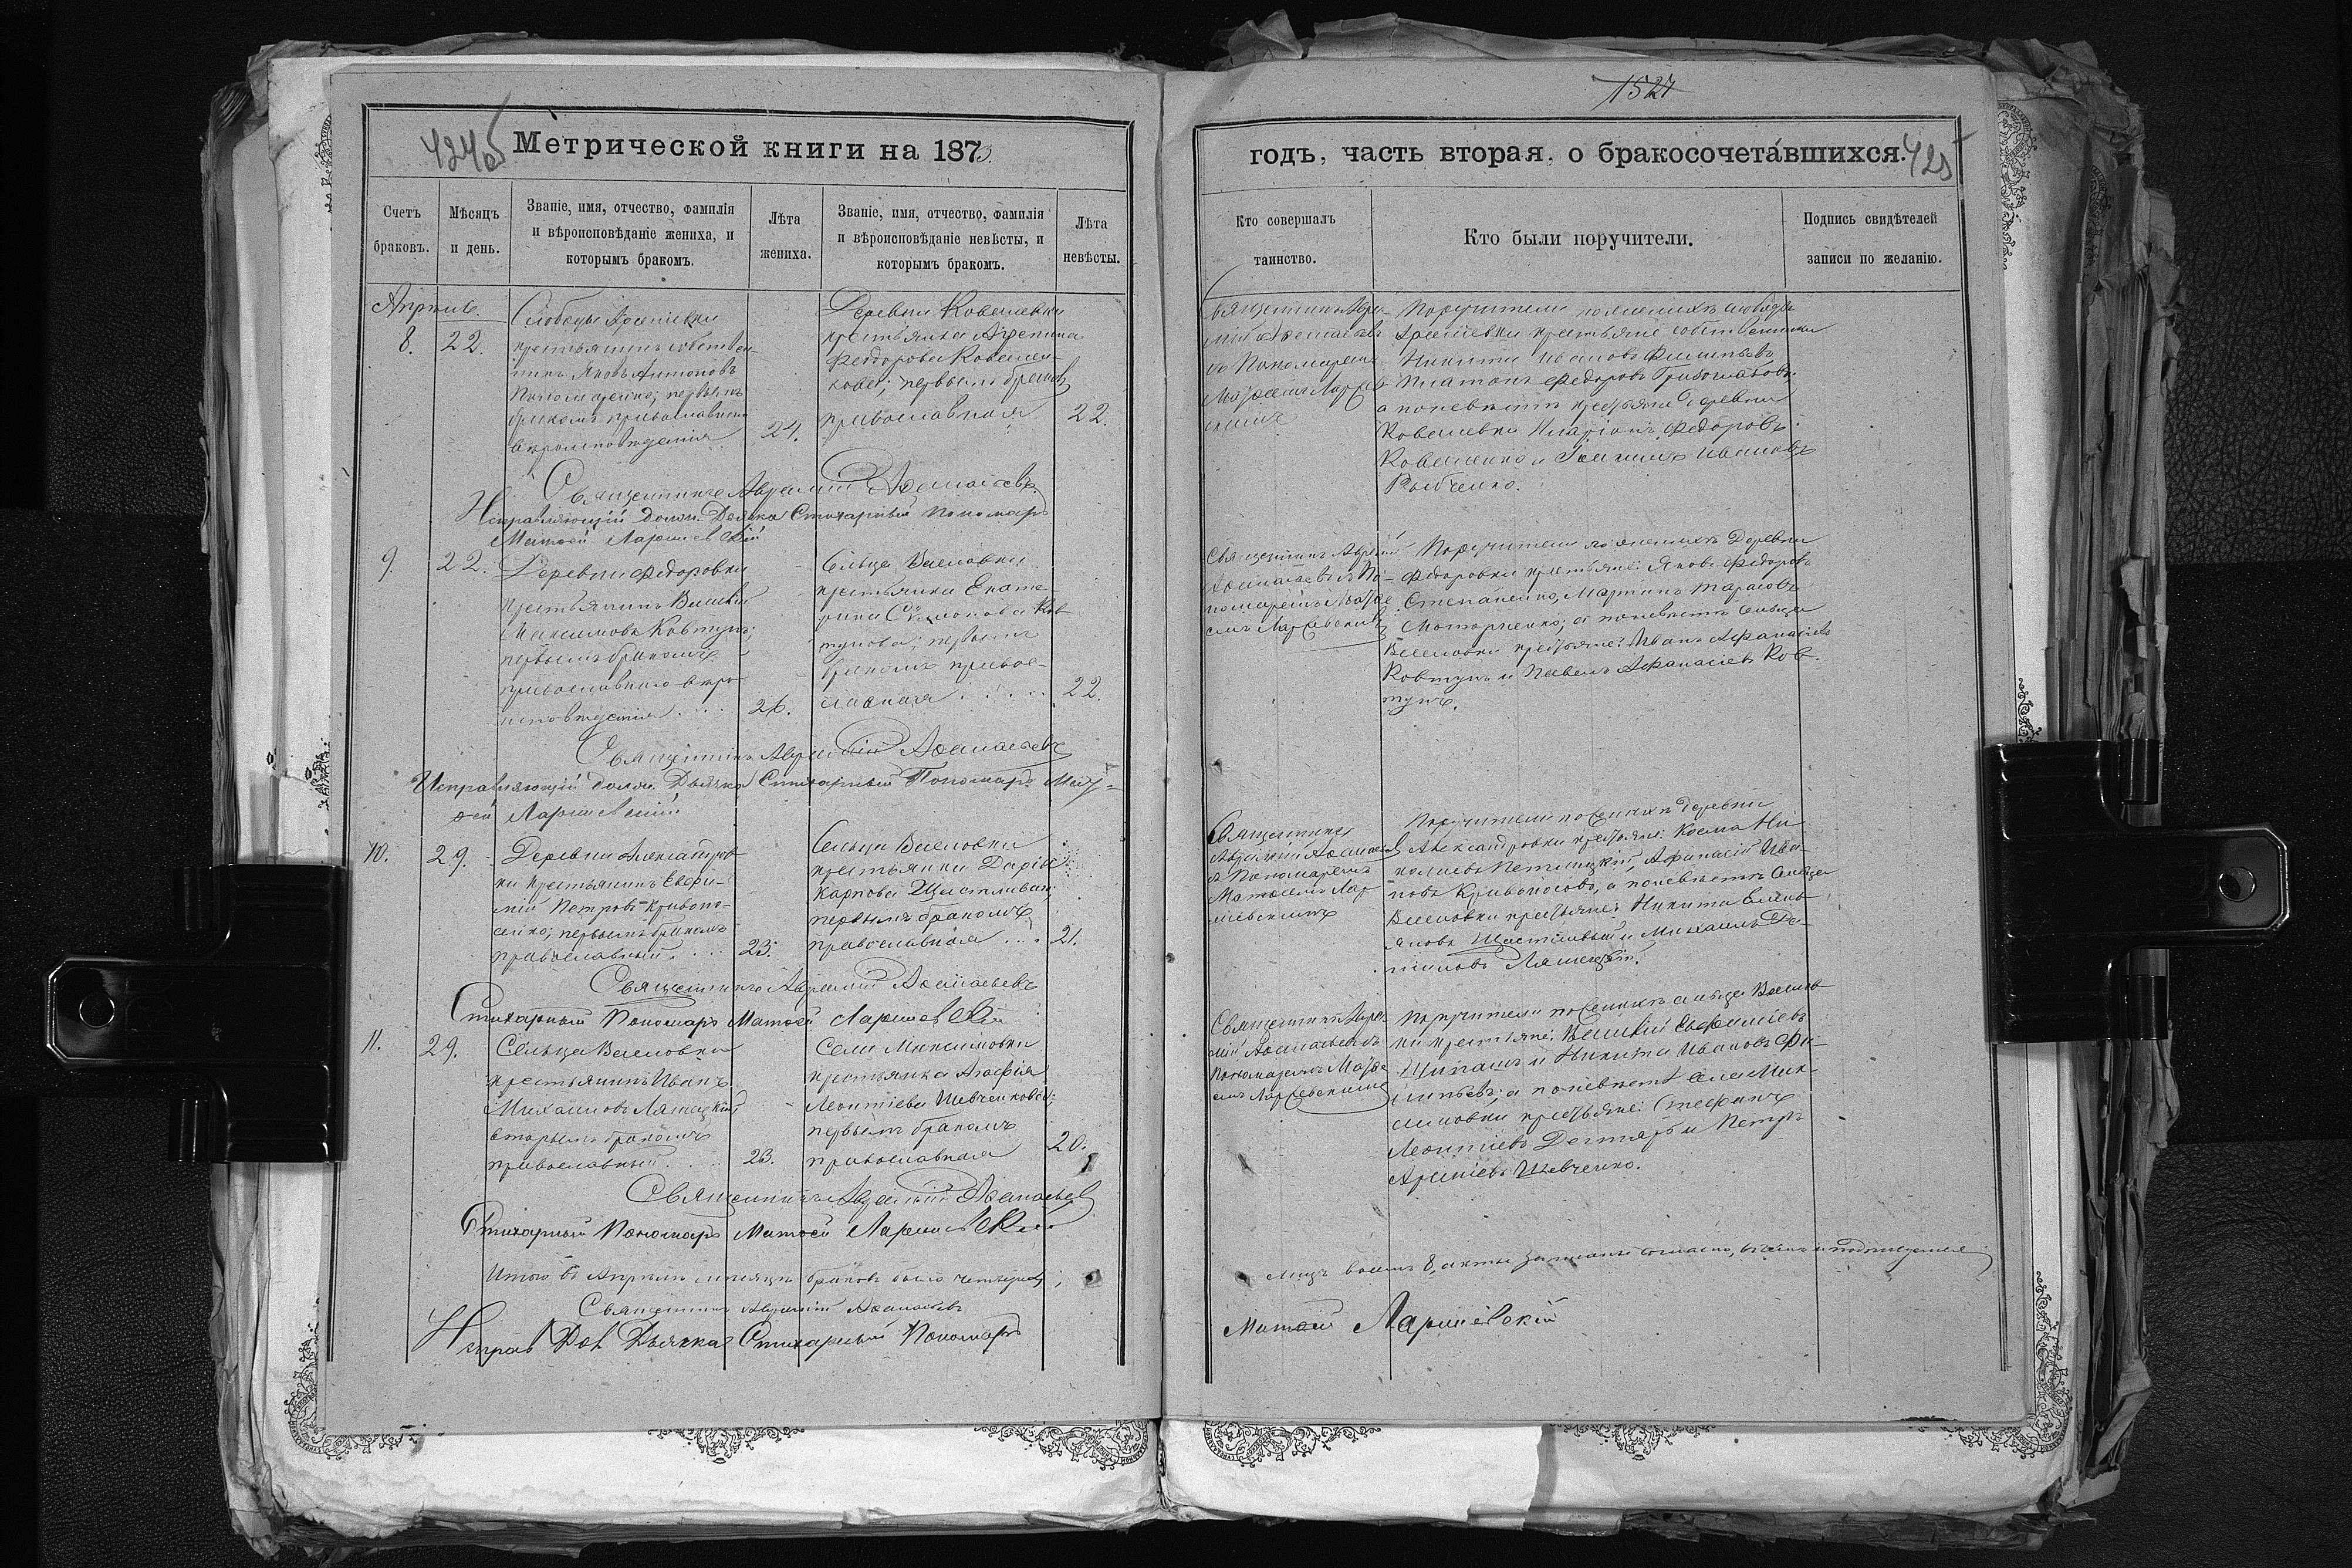 424об
Метрической книги на 1873
Счетъ браковъ.
Мѣсяцъ и день.
Званіе, имя, отчество, фамилія
и вѣроисповѣданіе жениха, и
которымъ бракомъ.
Лѣта жениха.
Званіе, имя, отчество, фамилія
и вѣроисповѣданіе невѣсты, и
которымъ бракомъ.
Лѣта невѣсты.
Апрель.
8.
22.
Слободы
крестьянинъ собствен-
никъ Яковъ Антоновъ
первымъ
бракомъ православнаго
вѣроисповѣданія
24.
Деревни Ковалевки
крестьянка Агрепина
Федорова Ковален-
кова; первымъ бракомъ
православная
22.
Священникъ Аврамій Афанасьевъ
Исправляющій долж. Дьячка Стихарный Пономарь
Матѳей Ларшевскій
9.
22.
Деревни Федоровки
крестьянинъ Василій
Максимовъ Ковтунъ;
первымъ бракомъ
православнаго вѣро-
исповѣданія
26.
Сельца Васловки
крестьянка Екате
рина Симонова Ков
тунова; первымъ
бракомъ правос-
лавная
22.
Священникъ Аврамій Афанасьевъ
Исправляющій долж. Дьячка Стихарный Пономарь Мат-
ѳей Ларшевскій
10.
29.
Деревни Александров
ки крестьянинъ Евфи-
мій Петровъ Кривоно-
сенко; первымъ бракомъ
православный
23.
Сельца Васловки
крестьянка Дарія
Карпова Щастливая,
первымъ бракомъ
православная
21.
Священникъ Аврамій Афанасьевъ
Стихарный Пономарь Матѳей Ларшевскій
11.
29.
Сельца Васловки
крестьянинъ Иванъ
Михайловъ Ляшецкій,
вторымъ бракомъ
православный
23.
Села Максимовки
крестьянка Агафія
Леонтіева Шевченкова;
первымъ бракомъ
православная
20.
Священникъ Аврамій Афанасьевъ
Стихарный Пономарь Матѳей Ларшевскій
Итого въ Апрѣлѣ мѣсяцѣ браковъ было четыре
Священникъ Аврамій Афанасьевъ
Исправ Дол Дьячка Стихарный Пономарь
годъ, часть вторая, о бракосочетавшихся.
425
Кто совершалъ
таинство.
Кто были поручители.
Подпись свидѣтелей
записи по желанію.
Священникъ Авра-
мій Афанасьевъ
съ Пономаремъ
Матѳеемъ Ларшев
скимъ
Поручители по женихѣ слободы
крестьяне собственники
Никита Ивановъ Филипьевъ,
Платонъ Федоровъ
а по невѣстѣ крестьяне деревни
Ковалевки Иларіонъ Федоровъ
Коваленко и Іоакимъ Ивановъ
Рыбченко.
Священникъ Аврамій
Афанасьевъ съ По-
номаремъ Матѳе
емъ Ларшевскимъ
Поручители по женихѣ Деревни
Федоровки крестьяне: Яковъ Федоровъ
Степаненко, Мартинъ Тарасовъ
а по невѣстѣ сельца
Васловки крестьяне: Иванъ Афанасіевъ
Ковтунъ и Павелъ Афанасіевъ Ков-
тунъ.
Священникъ
Аврамій Афанасьевъ
съ Пономаремъ
Матѳеемъ Лар
шевскимъ
Поручители по женихѣ деревни
Александровки крестьяне: Косма Ни
колаевъ Афанасій Ива-
новъ Кривоносовъ, а по невѣстѣ Сельца
Васловки крестьяне: Никита Емель
яновъ Щастливый и Михаилъ Да-
ниловъ Ляшецкій.
Священникъ Авра
мій Афанасьевъ съ
Пономаремъ Матѳе
емъ Ларшевскимъ
Поручители по женихѣ сельца Васлов
ки крестьяне: Василій Евфиміевъ
Цыганъ и Никита Ивановъ Фи-
липьевъ; а по невѣстѣ села Мак-
симовки крестьяне: Стефанъ
Леонтіевъ Дегтярь и Петръ
Арсеніевъ Шевченко.
Матѳей Ларшевскій